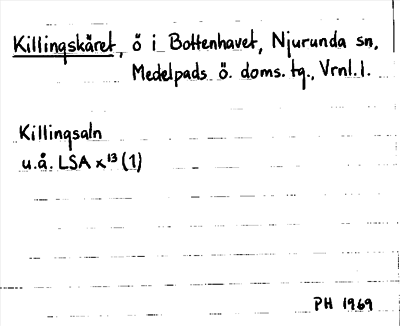 Killingskäret, ö i Bottenhavet, Njurunda sn,
Medelpads ö. doms. tg., Vrnl. l.
Killingsaln
u.å. LSA x¹³ (1)
PH 1969